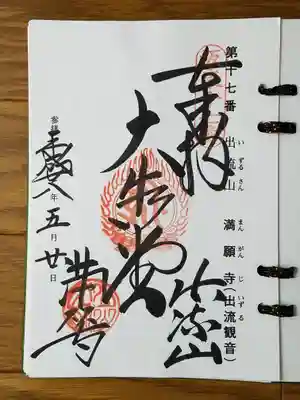 第十七番 出流山 満願寺(出流観音)
いずるさん まんがんじ いずる
奉拝
出流山
大御堂
満願寺
年五月廿日